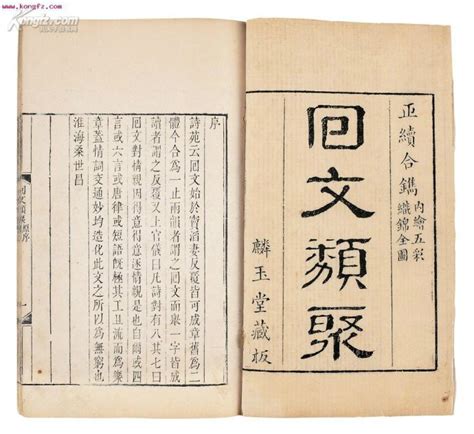 www.kongfz.com
正續合鐫
內繪五彩
織錦全圖
回文類聚
麟玉堂藏板
序
詩苑云回文始於竇滔妻反覆皆成章舊為二
體今合為一止兩韻者謂之回文而舉一字皆成
讀者謂之反覆又上官儀曰凡詩對有八其七曰
回文對情親因得意得意逐情親是也自爾或四
言或六言或唐律或短語既極其工且流而為樂
章蓋情詞文通妙均造化此文之所以為無窮也
淮海桑世昌